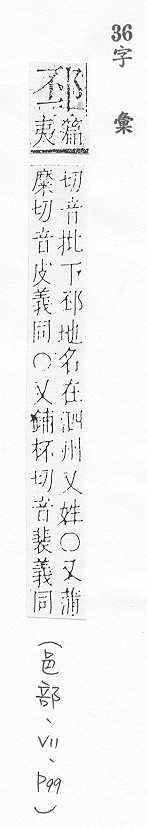 36字 彙
邳
篇夷
切音批下邳地名在泗州又姓○又蒲
糜切音皮義同○又鋪杯切音裴義同
(邑部、VII、P99)